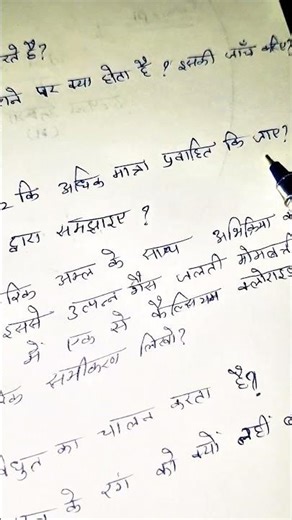 रते है?
लने पर क्या होता है ? इसकी जाँच कीए?
2 कि अधिक मात्रा प्रवाहित कि जाए?
द्वारा समझाइए ?
रिक अम्ल के साथ अभिक्रिया क
इससे उत्पन्न गैस जलती मोमबत्ती
में एक से कैल्सियम क्लोराइड
क समीकरण लिखो?
विधुत का चालन करता है?
के रंग को क्यों नहीं ब